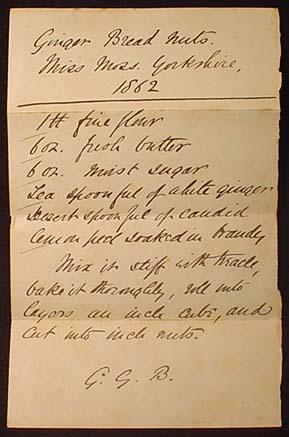 Ginger Bread nuts.
Miss Moss. Yorkshire,
1862
1 lb fine flour
6 oz. fresh butter
6 oz. moist sugar
Tea spoonful of white ginger
Dessert spoonful of candid
lemon peel soaked in brandy
Mix it stiff with treacle,
bake it thoroughly, roll into
layers an inch cube, and
cut into inch nuts.
G. G. B.